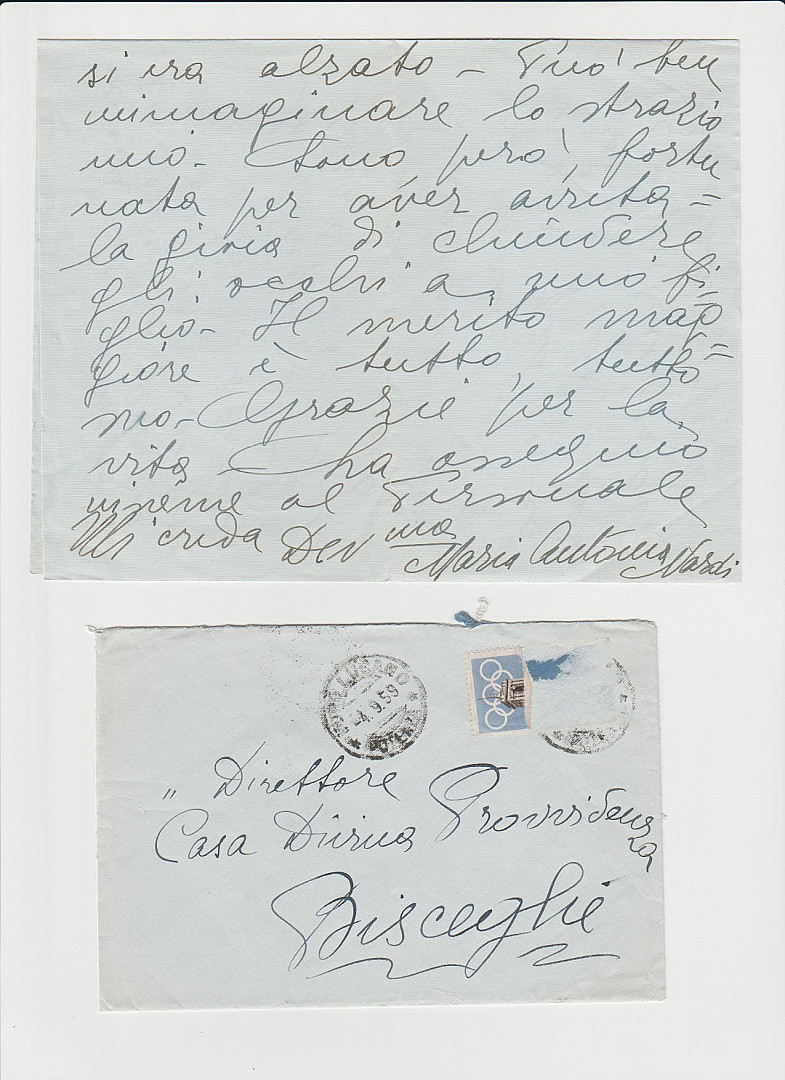 si era alzato - Può ben
immaginare lo strazio
mio - Sono però, fortu
nata per aver avuta =
la gioia di chiudere
gli occhi a mio fi-
glio - Il merito mag=
giore è tutto, tutto
suo - Grazie per la
vita - La ossequio
insieme al Personale
Mi creda Dev ma Maria Antonia Nardi
LUCANO
-4.9.59
POTENZA
" Direttore
Casa Divina Provvidenza
Bisceglie